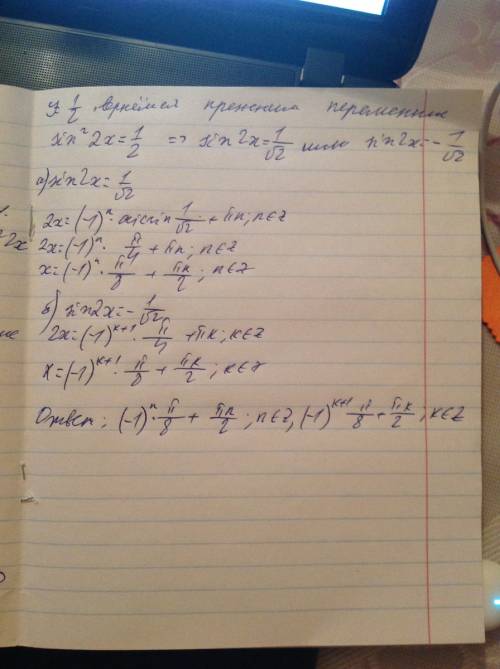 y = 1/2, вернёмся прежним переменным
sin² 2x = 1/2 => sin 2x = 1/√2 или sin 2x = - 1/√2
а) sin 2x = 1/√2
2x = (-1)ⁿ · arcsin 1/√2 + πn; n∈Z
2x = (-1)ⁿ · π/4 + πn; n∈Z
x = (-1)ⁿ · π/8 + πn/2; n∈Z
б) sin 2x = - 1/√2
2x = (-1)ᵏ⁺¹ · π/4 + πk; k∈Z
x = (-1)ᵏ⁺¹ · π/8 + πk/2; k∈Z
Ответ: (-1)ⁿ · π/8 + πn/2; n∈Z, (-1)ᵏ⁺¹ π/8 + πk/2; k∈Z